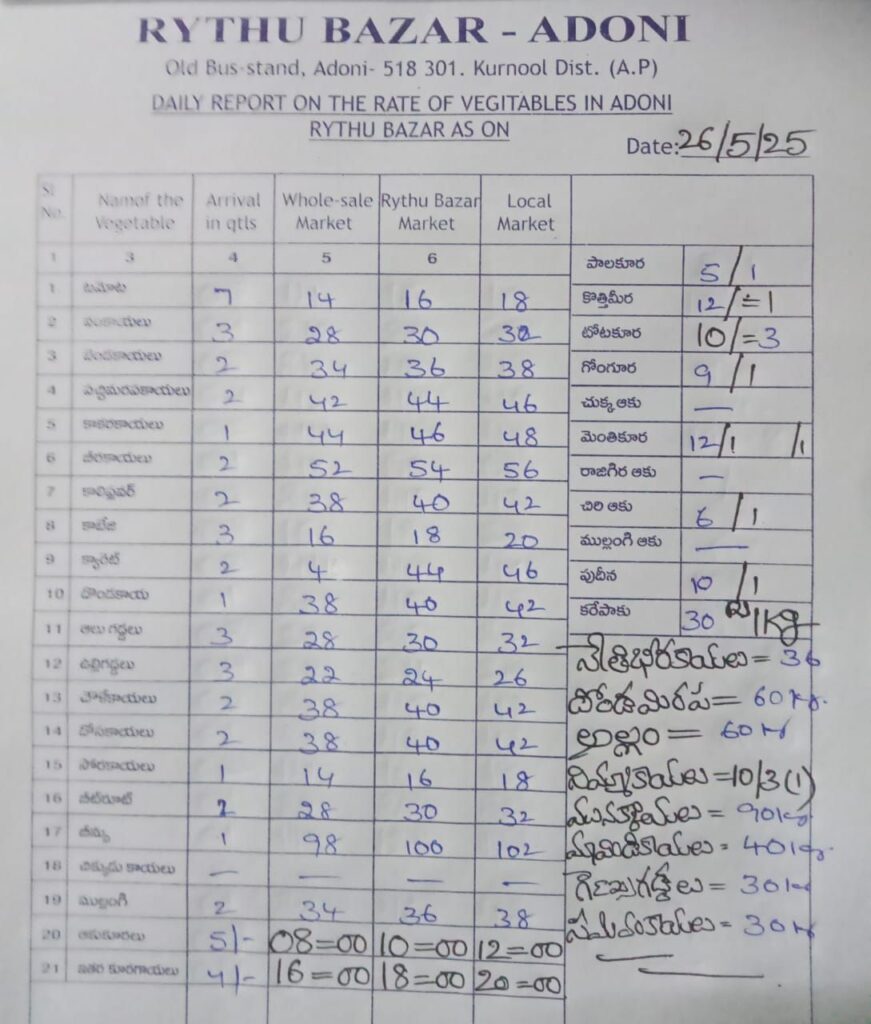 RYTHU BAZAR - ADONI
Old Bus-stand, Adoni- 518 301. Kurnool Dist. (A.P)
DAILY REPORT ON THE RATE OF VEGITABLES IN ADONI
RYTHU BAZAR AS ON
Date: 26/5/25
Sl No. Namof the Vegetable Arrival in qtls Whole-sale Market Rythu Bazar Market Local Market
1 3 4 5 6
1 టమాట 7 14 16 18
2 వంకాయలు 3 28 30 32
3 బెండకాయలు 2 34 36 38
4 పచ్చిమిరపకాయలు 2 42 44 46
5 కాకరకాయలు 1 44 46 48
6 బీరకాయలు 2 52 54 56
7 కాలిఫ్లవర్ 2 38 40 42
8 క్యాబేజి 3 16 18 20
9 క్యారెట్ 2 4 44 46
10 దొండకాయ 1 38 40 42
11 ఆలు గడ్డలు 3 28 30 32
12 ఉల్లిగడ్డలు 3 22 24 26
13 2 38 40 42
14 2 38 40 42
15 సొరకాయలు 1 14 16 18
16 బీట్‌రూట్ 2 28 30 32
17 1 98 100 102
18 చిక్కుడు కాయలు — — — —
19 ముల్లంగి 2 34 36 38
20 ఆకుకూరలు 5/- 08=00 10=00 12=00
21 ఇతర కూరగాయలు 4/- 16=00 18=00 20=00
పాలకూర 5/1
కొత్తిమీర 12/=1
టోటకూర 10/=3
గోంగూర 9/1
చుక్క ఆకు —
మెంతికూర 12/1 /1
రాజగిర ఆకు —
చిరి ఆకు 6/1
ముల్లంగి ఆకు —
పుదీన 10/1
కరేపాకు 30 1Kg
నేతిబీరకాయలు = 36
60 Kg.
అల్లం = 60
నిమ్మకాయలు = 10/3 (1)
మునక్కాయలు = 90 Kg
మామిడికాయలు = 40 Kg.
30 Kg
= 30